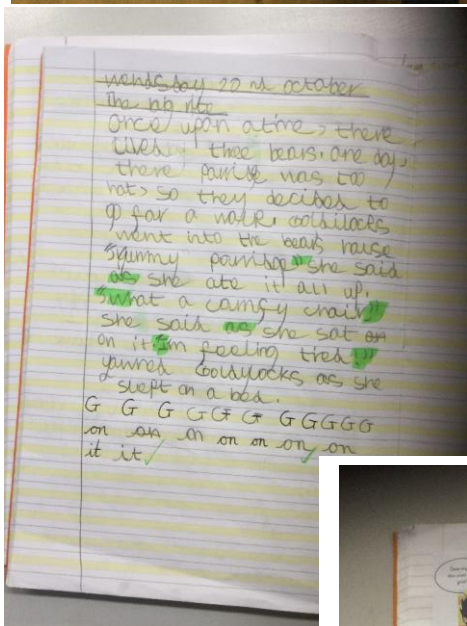 wendsday 22 nd october
The big rite
Once upon a time, there
lived three bears. one day,
there parrige was too
hot, so they decided to
go for a walk. Goldilocks
went into the bears house
"yummy parridge" she said
as she ate it all up.
"What a comfy chair"
she said as she sat on
on it. I'm feeling tired!"
yawned Goldylocks as she
slept on a bed.
G G G G G G G G G G G
on on on on on on on
it it